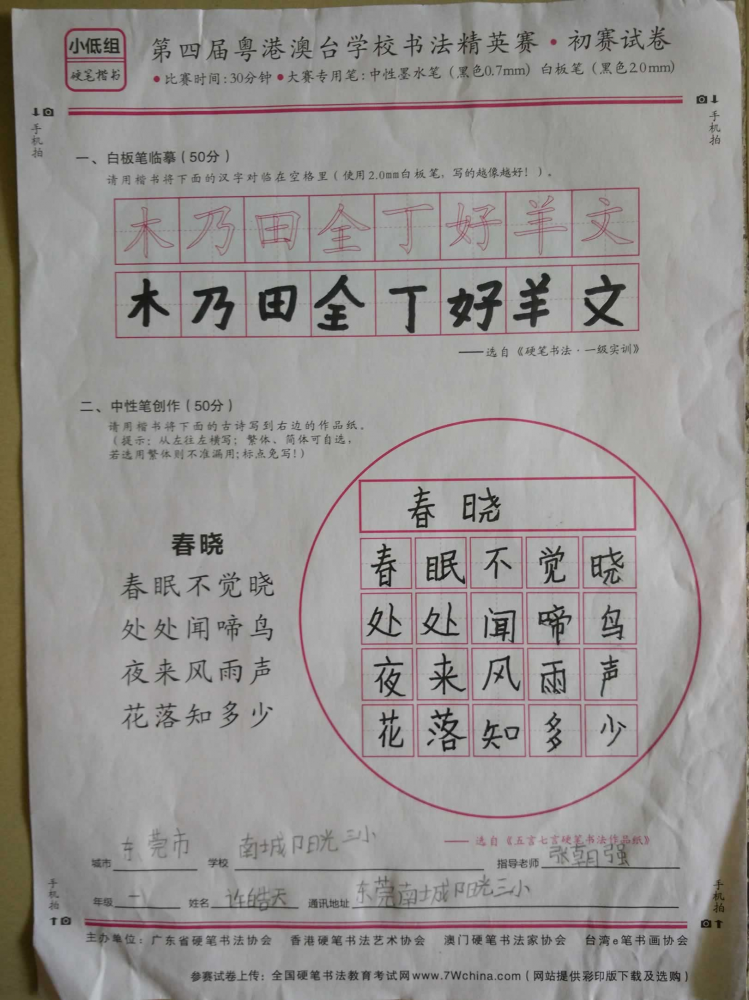 小低组
硬笔楷书
第四届粤港澳台学校书法精英赛·初赛试卷
●比赛时间:30分钟 ●大赛专用笔:中性墨水笔(黑色0.7mm) 白板笔(黑色2.0mm)
手机拍
手机拍
一、白板笔临摹(50分)
请用楷书将下面的汉字对临在空格里(使用2.0mm白板笔,写的越像越好!)。
木乃田全丁好羊文
木乃田全丁好羊文
——选自《硬笔书法·一级实训》
二、中性笔创作(50分)
请用楷书将下面的古诗写到右边的作品纸。
(提示:从左往左横写;繁体、简体可自选,
若选用繁体则不准漏用;标点免写!)
春晓
春眠不觉晓
处处闻啼鸟
夜来风雨声
花落知多少
春晓
春眠不觉晓
处处闻啼鸟
夜来风雨声
花落知多少
——选自《五言七言硬笔书法作品纸》
城市 东莞市 学校 南城阳光三小 指导老师 张朝强
年级 一 姓名 许皓天 通讯地址 东莞南城阳光三小
手机拍
手机拍
主办单位:广东省硬笔书法协会 香港硬笔书法艺术协会 澳门硬笔书法家协会 台湾e笔书画协会
参赛试卷上传:全国硬笔书法教育考试网www.7Wchina.com(网站提供彩印版下载及选购)